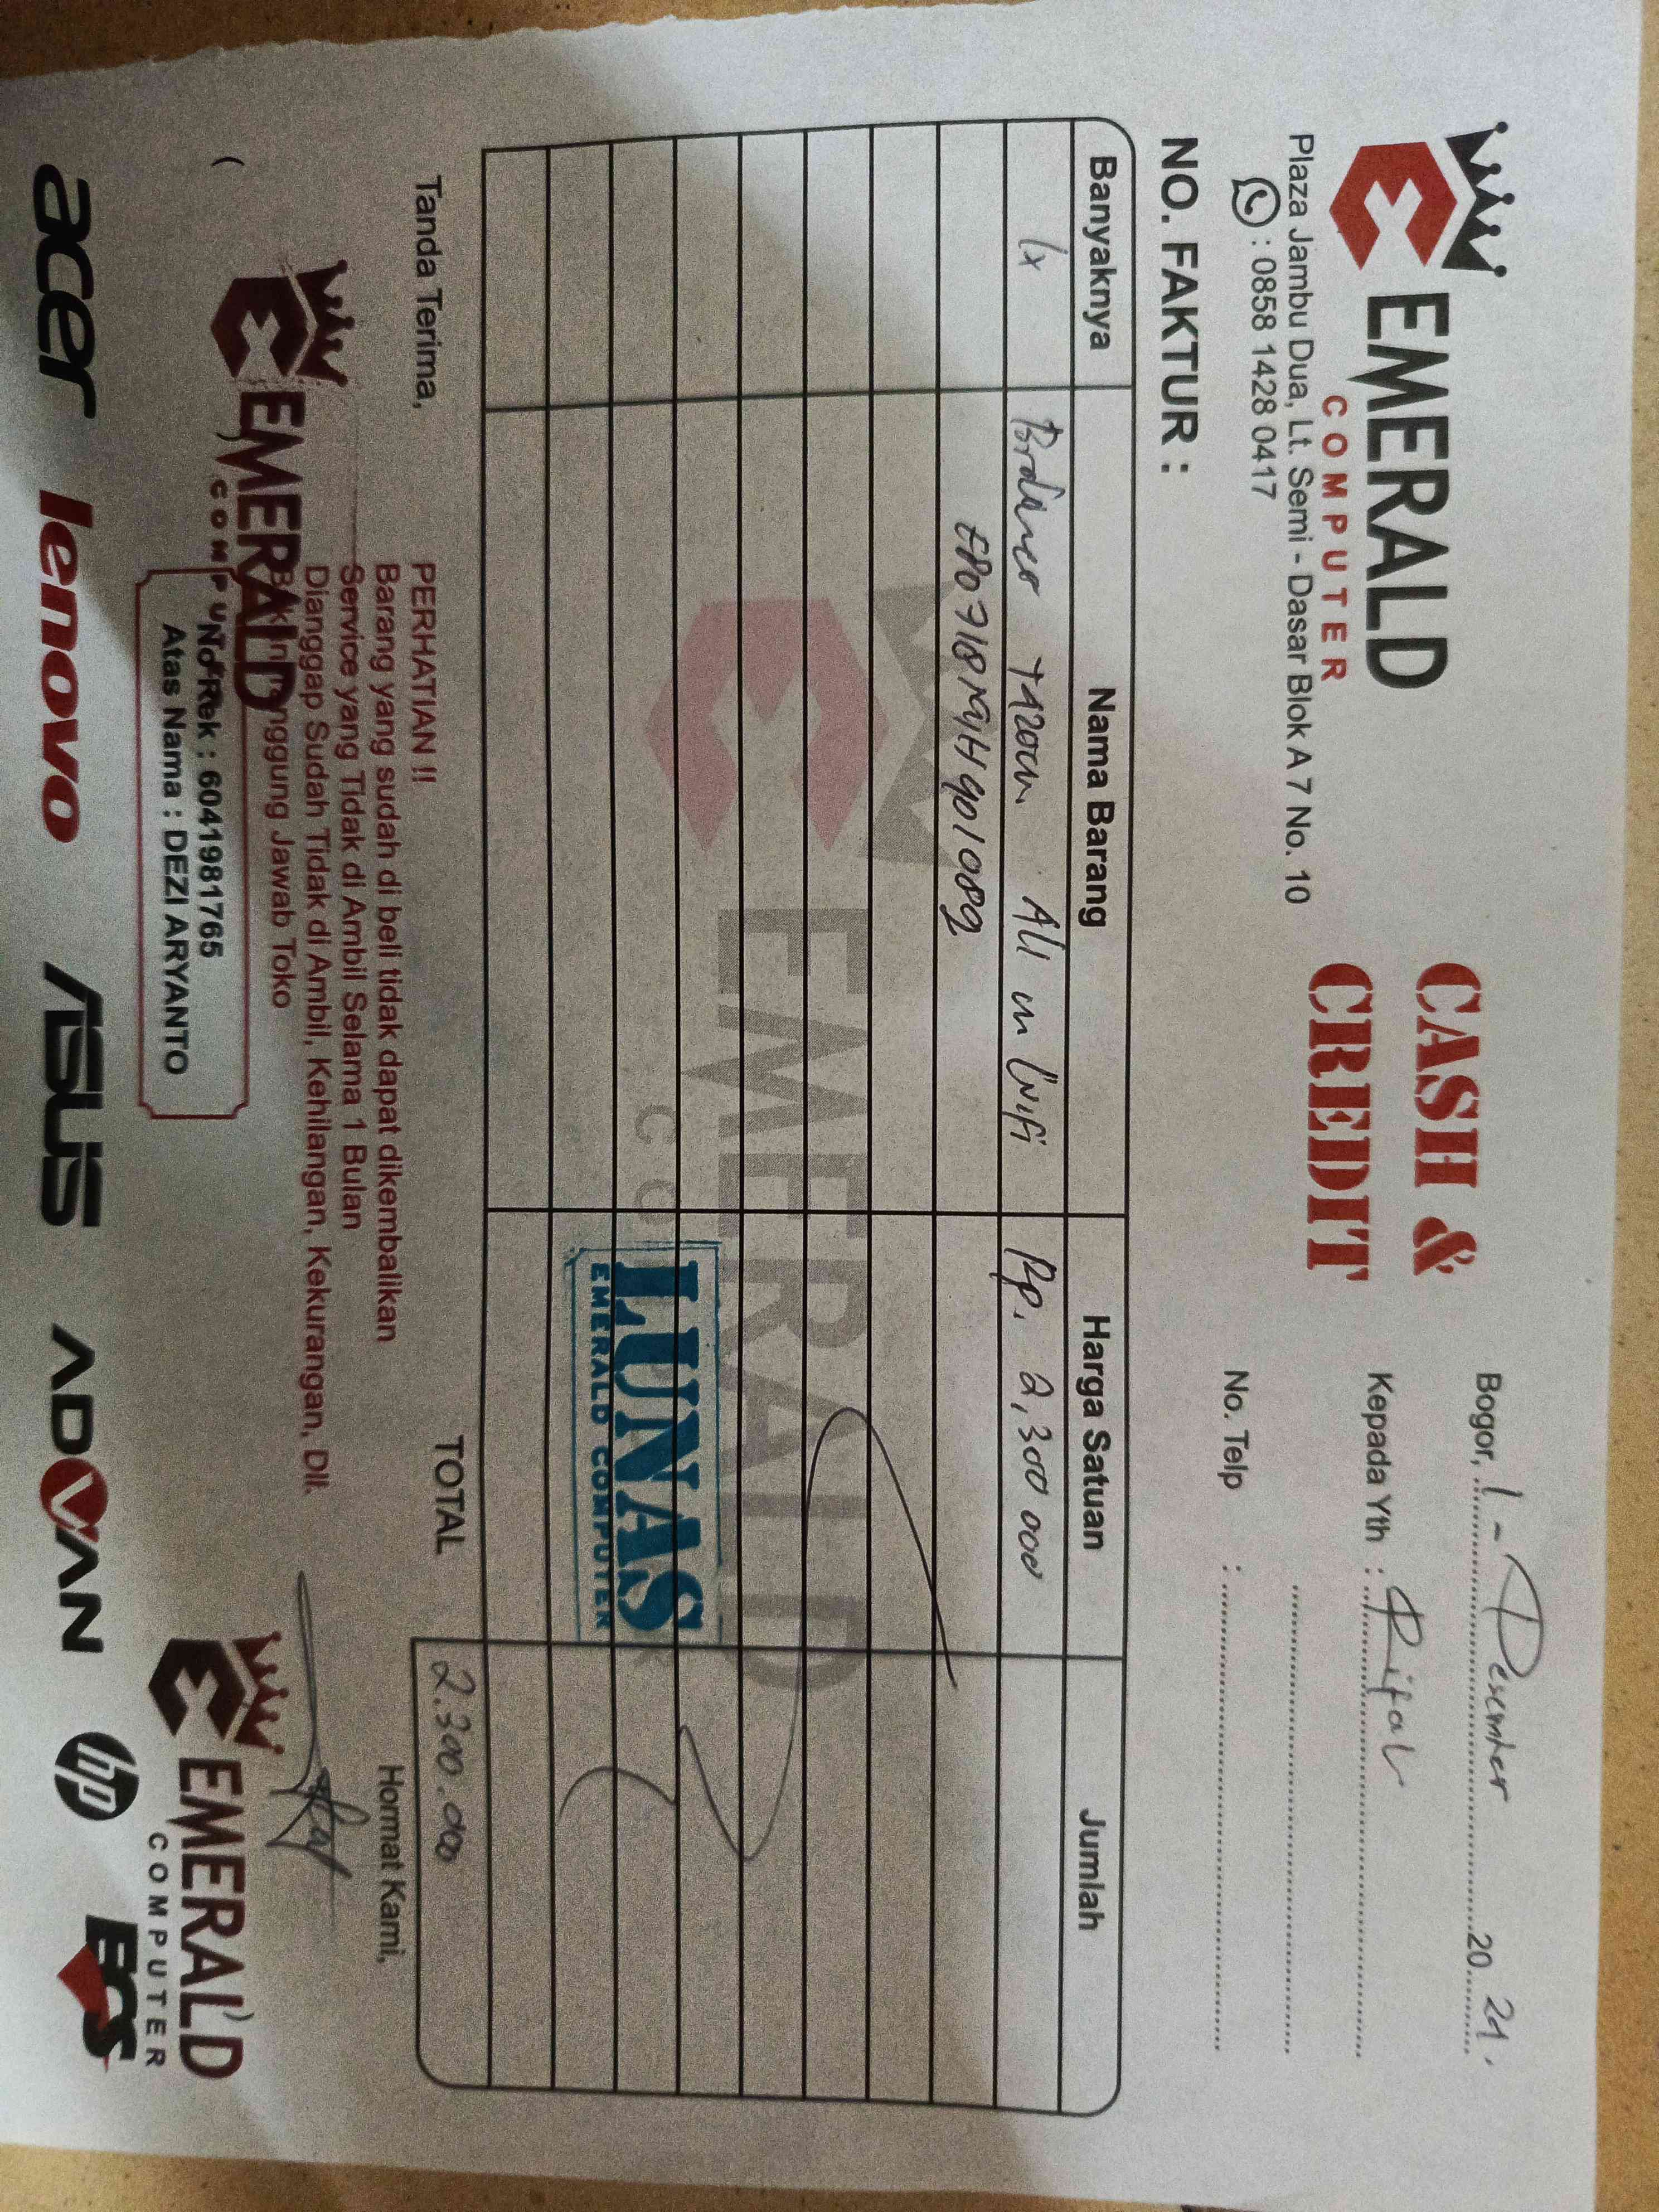 EMERALD
COMPUTER
Plaza Jambu Dua, Lt. Semi - Dasar Blok A 7 No. 10
: 0858 1428 0417
CASH &
CREDIT
Bogor, 1 - Desember 20 21.
Kepada Yth : Rifal
No. Telp :
NO. FAKTUR :
Banyaknya Nama Barang Harga Satuan Jumlah
1x All in Wifi Rp. 2,300 000
EMERALD
CO
LUNAS
EMERALD COMPUTER
TOTAL 2.300.000
Tanda Terima,
PERHATIAN !!
Barang yang sudah di beli tidak dapat dikembalikan
Service yang Tidak di Ambil Selama 1 Bulan
Dianggap Sudah Tidak di Ambil, Kehilangan, Kekurangan, Dll.
Jawab Toko
No Rek : 6041981765
Atas Nama : DEZI ARYANTO
Hormat Kami,
(
EMERALD
COMPUTER
EMERALD
COMPUTER
)
acer lenovo ASUS ADVAN hp ECS